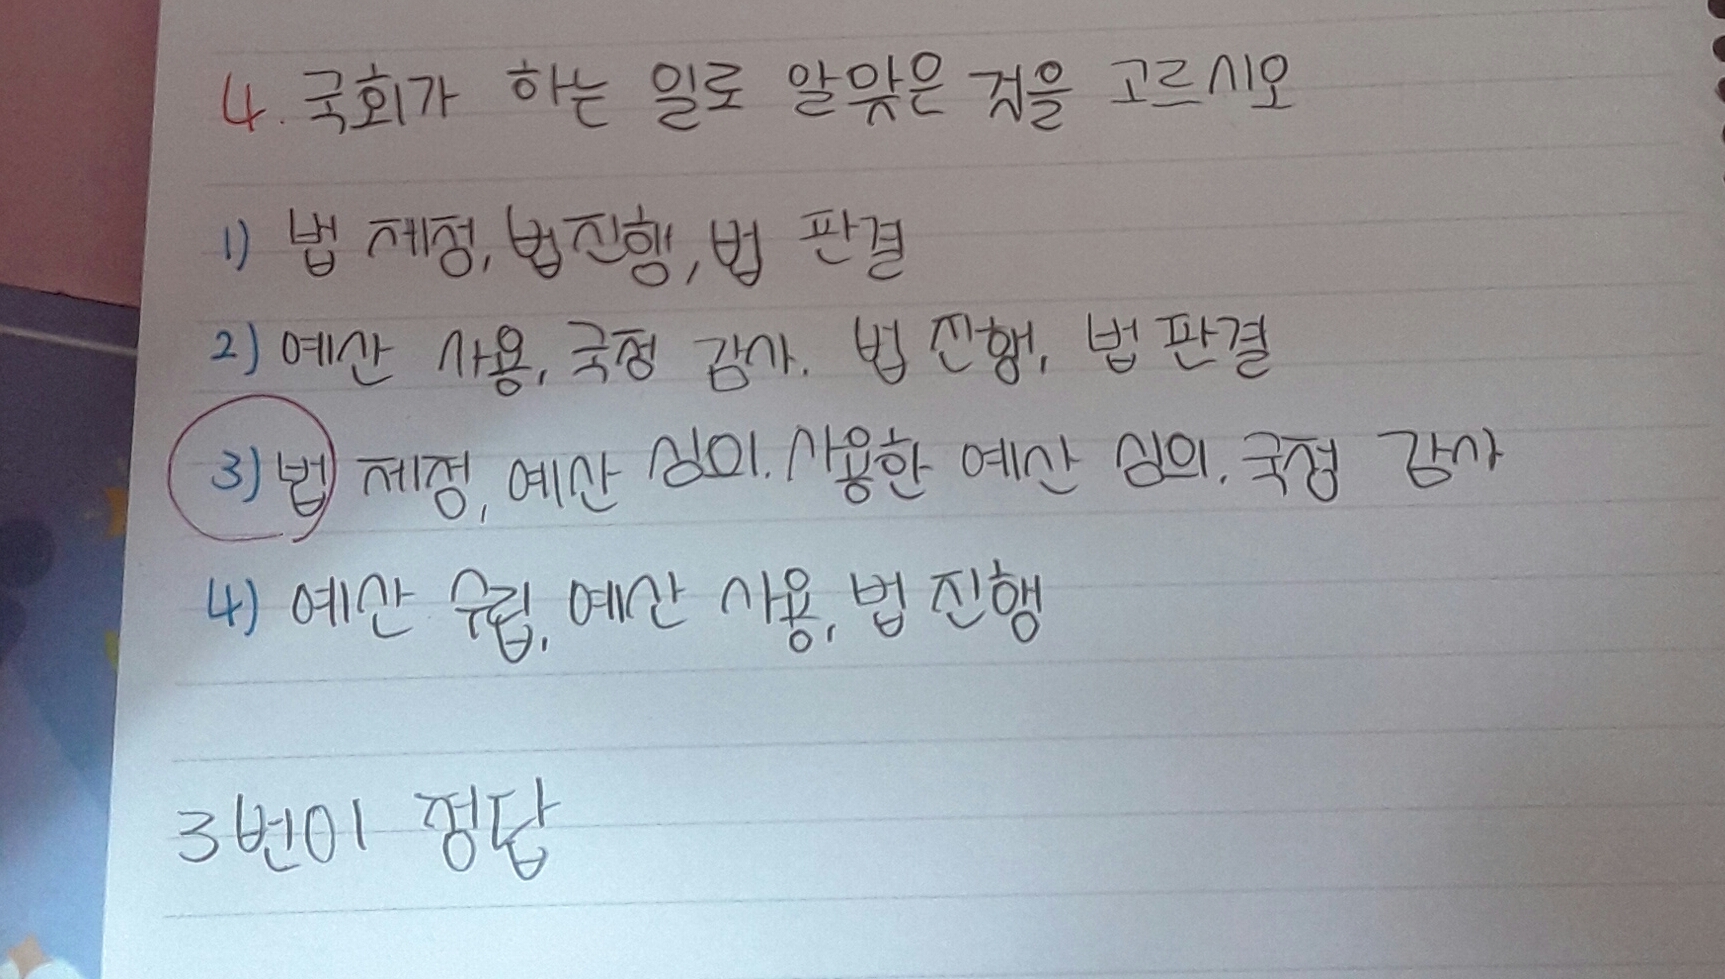 4. 국회가 하는 일로 알맞은 것을 고르시오
1) 법 제정, 법진행, 법 판결
2) 예산 사용, 국정 감사. 법 진행, 법 판결
3) 법 제정, 예산 심의. 사용한 예산 심의. 국정 감사
4) 예산 수립, 예산 사용, 법 진행
3번이 정답